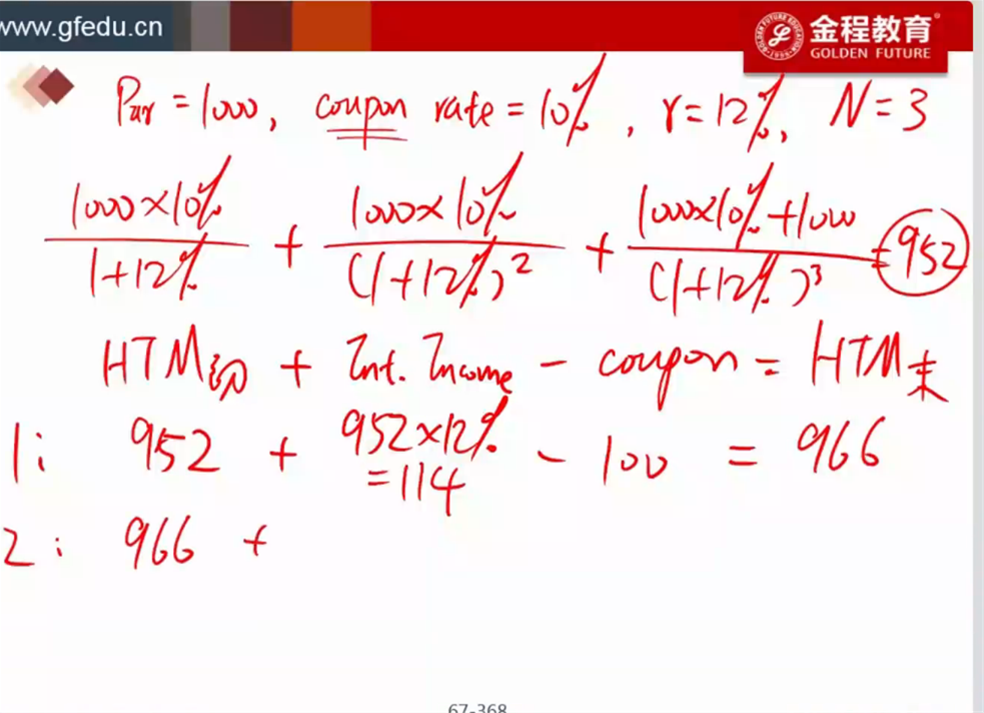 www.gfedu.cn
金程教育
GOLDEN FUTURE
Par = 1000, coupon rate = 10%, r = 12%, N = 3
1000×10% / 1+12% + 1000×10% / (1+12%)² + 1000×10%+1000 / (1+12%)³ = 952
HTM初 + Int. Income - coupon = HTM末
1: 952 + 952×12% = 114 - 100 = 966
2: 966 +
67-368